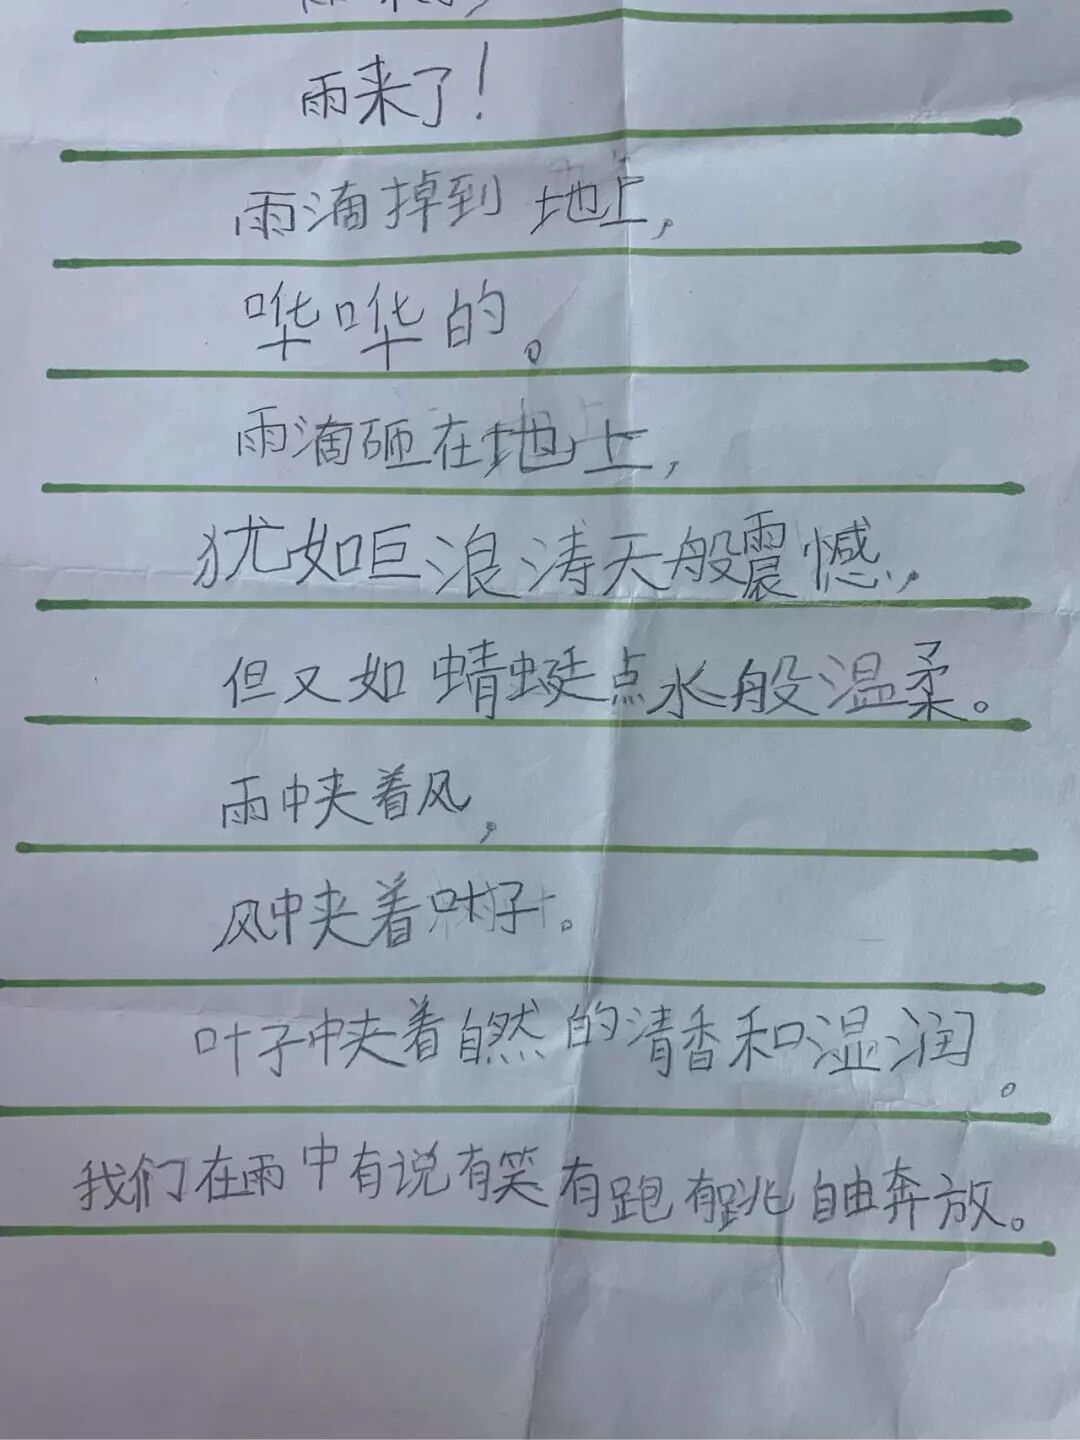 雨来了！
雨滴掉到地上，
哗哗的。
雨滴砸在地上，
犹如巨浪涛天般震憾，
但又如蜻蜓点水般温柔。
雨中夹着风，
风中夹着叶子。
叶子中夹着自然的清香和湿润。
我们在雨中有说有笑有跑有跳自由奔放。